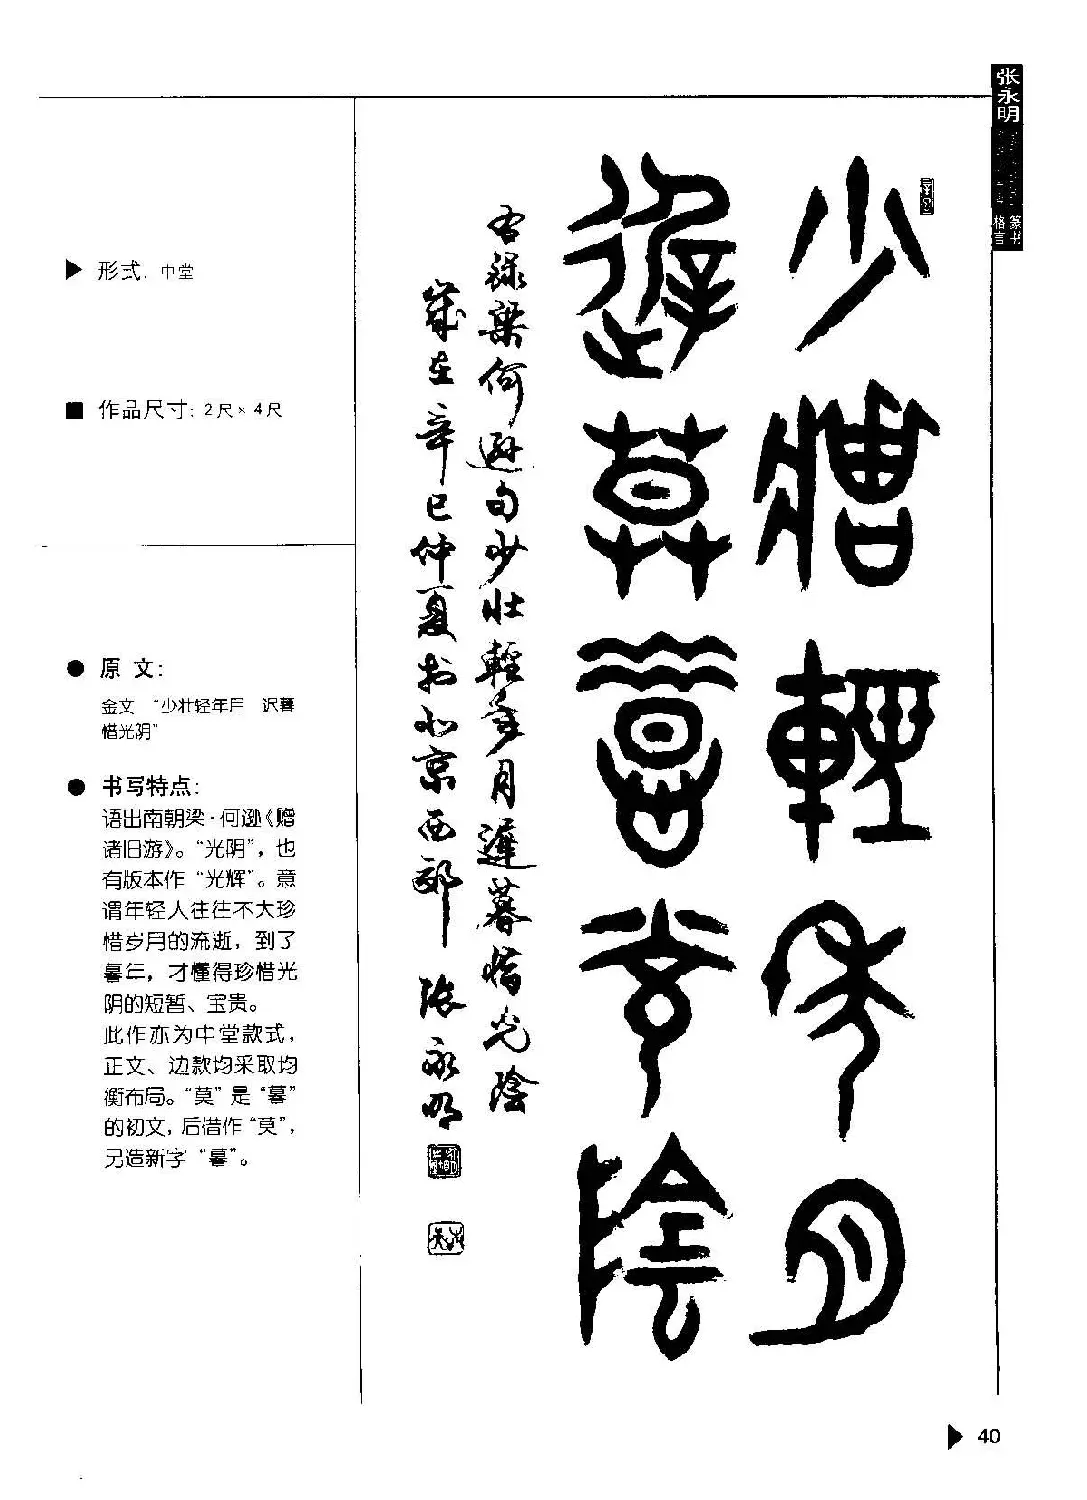 张永明
篆书
格言
少壮轻年月
迟莫惜光阴
右录梁何逊句少壮轻年月迟暮惜光阴
岁在辛巳仲夏于北京西郊 张永明
▶ 形式: 中堂
■ 作品尺寸: 2尺×4尺
● 原 文:
金文 “少壮轻年月 迟暮
惜光阴”
● 书写特点:
语出南朝梁·何逊《赠
诸旧游》。“光阴”, 也
有版本作“光辉”。意
谓年轻人往往不大珍
惜岁月的流逝, 到了
暮年, 才懂得珍惜光
阴的短暂、宝贵。
此作亦为中堂款式,
正文、边款均采取均
衡布局。“莫”是“暮”
的初文, 后借作“莫”,
另造新字“暮”。
▶ 40